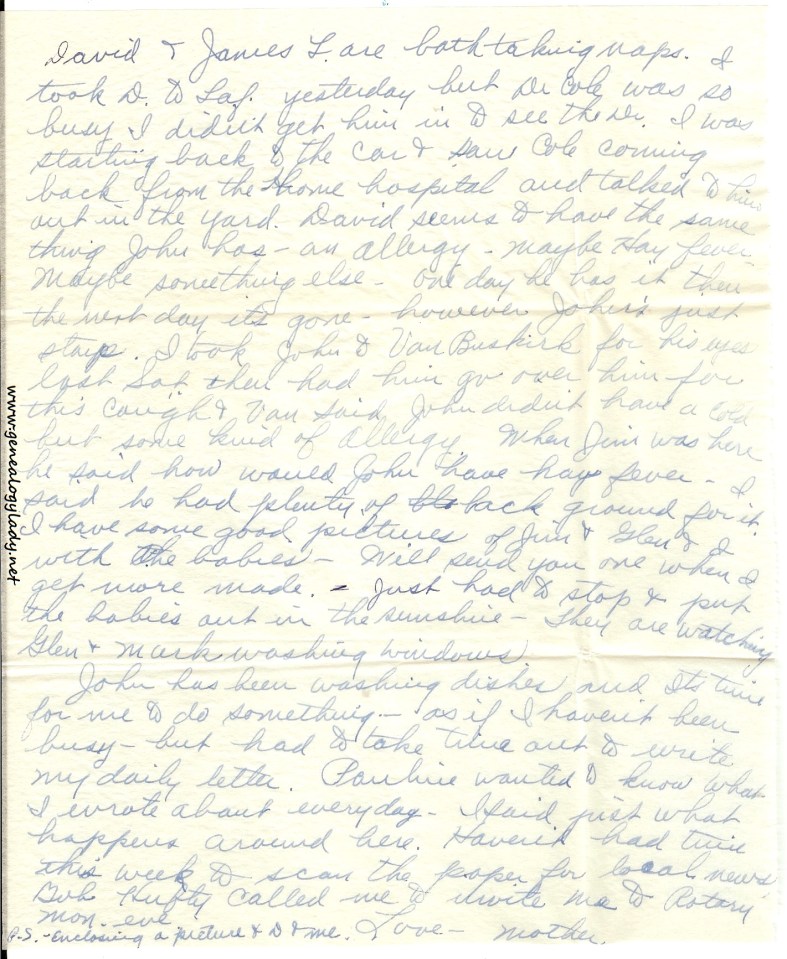 David & James L. are both taking naps. I
took D. to Laf. yesterday but Dr Cole was so
busy I didn't get him in to see the Dr. I was
starting back to the car & saw Cole coming
back from the Home hospital and talked to him
out in the yard. David seems to have the same
thing John has - an allergy - maybe Hay fever
Maybe something else - One day he has it then
the next day it's gone - however John's just
stays. I took John to Van Buskirk for his eyes
last Sat then had him go over him for
this cough & Van said John didn't have a cold
but some kind of allergy. When Jim was here
he said how would John have hay fever - I
said he had plenty of back ground for it.
I have some good pictures of Jim & Glen & I
with the babies - Will send you one when I
get more made. - Just had to stop & put
the babies out in the sunshine - They are watching
Glen & Mark washing windows
John has been washing dishes and Its time
for me to do something - as if I haven't been
busy - but had to take time out to write
my daily letter. Pauline wanted to know what
I wrote about everyday - I said just what
happens around here. Haven't had time
this week to scan the paper for local news
Bob Hufty called me to invite me to Rotary
mon. eve
P.S. - Enclosing a picture & D & me. Love - Mother.
www.genealogylady.net